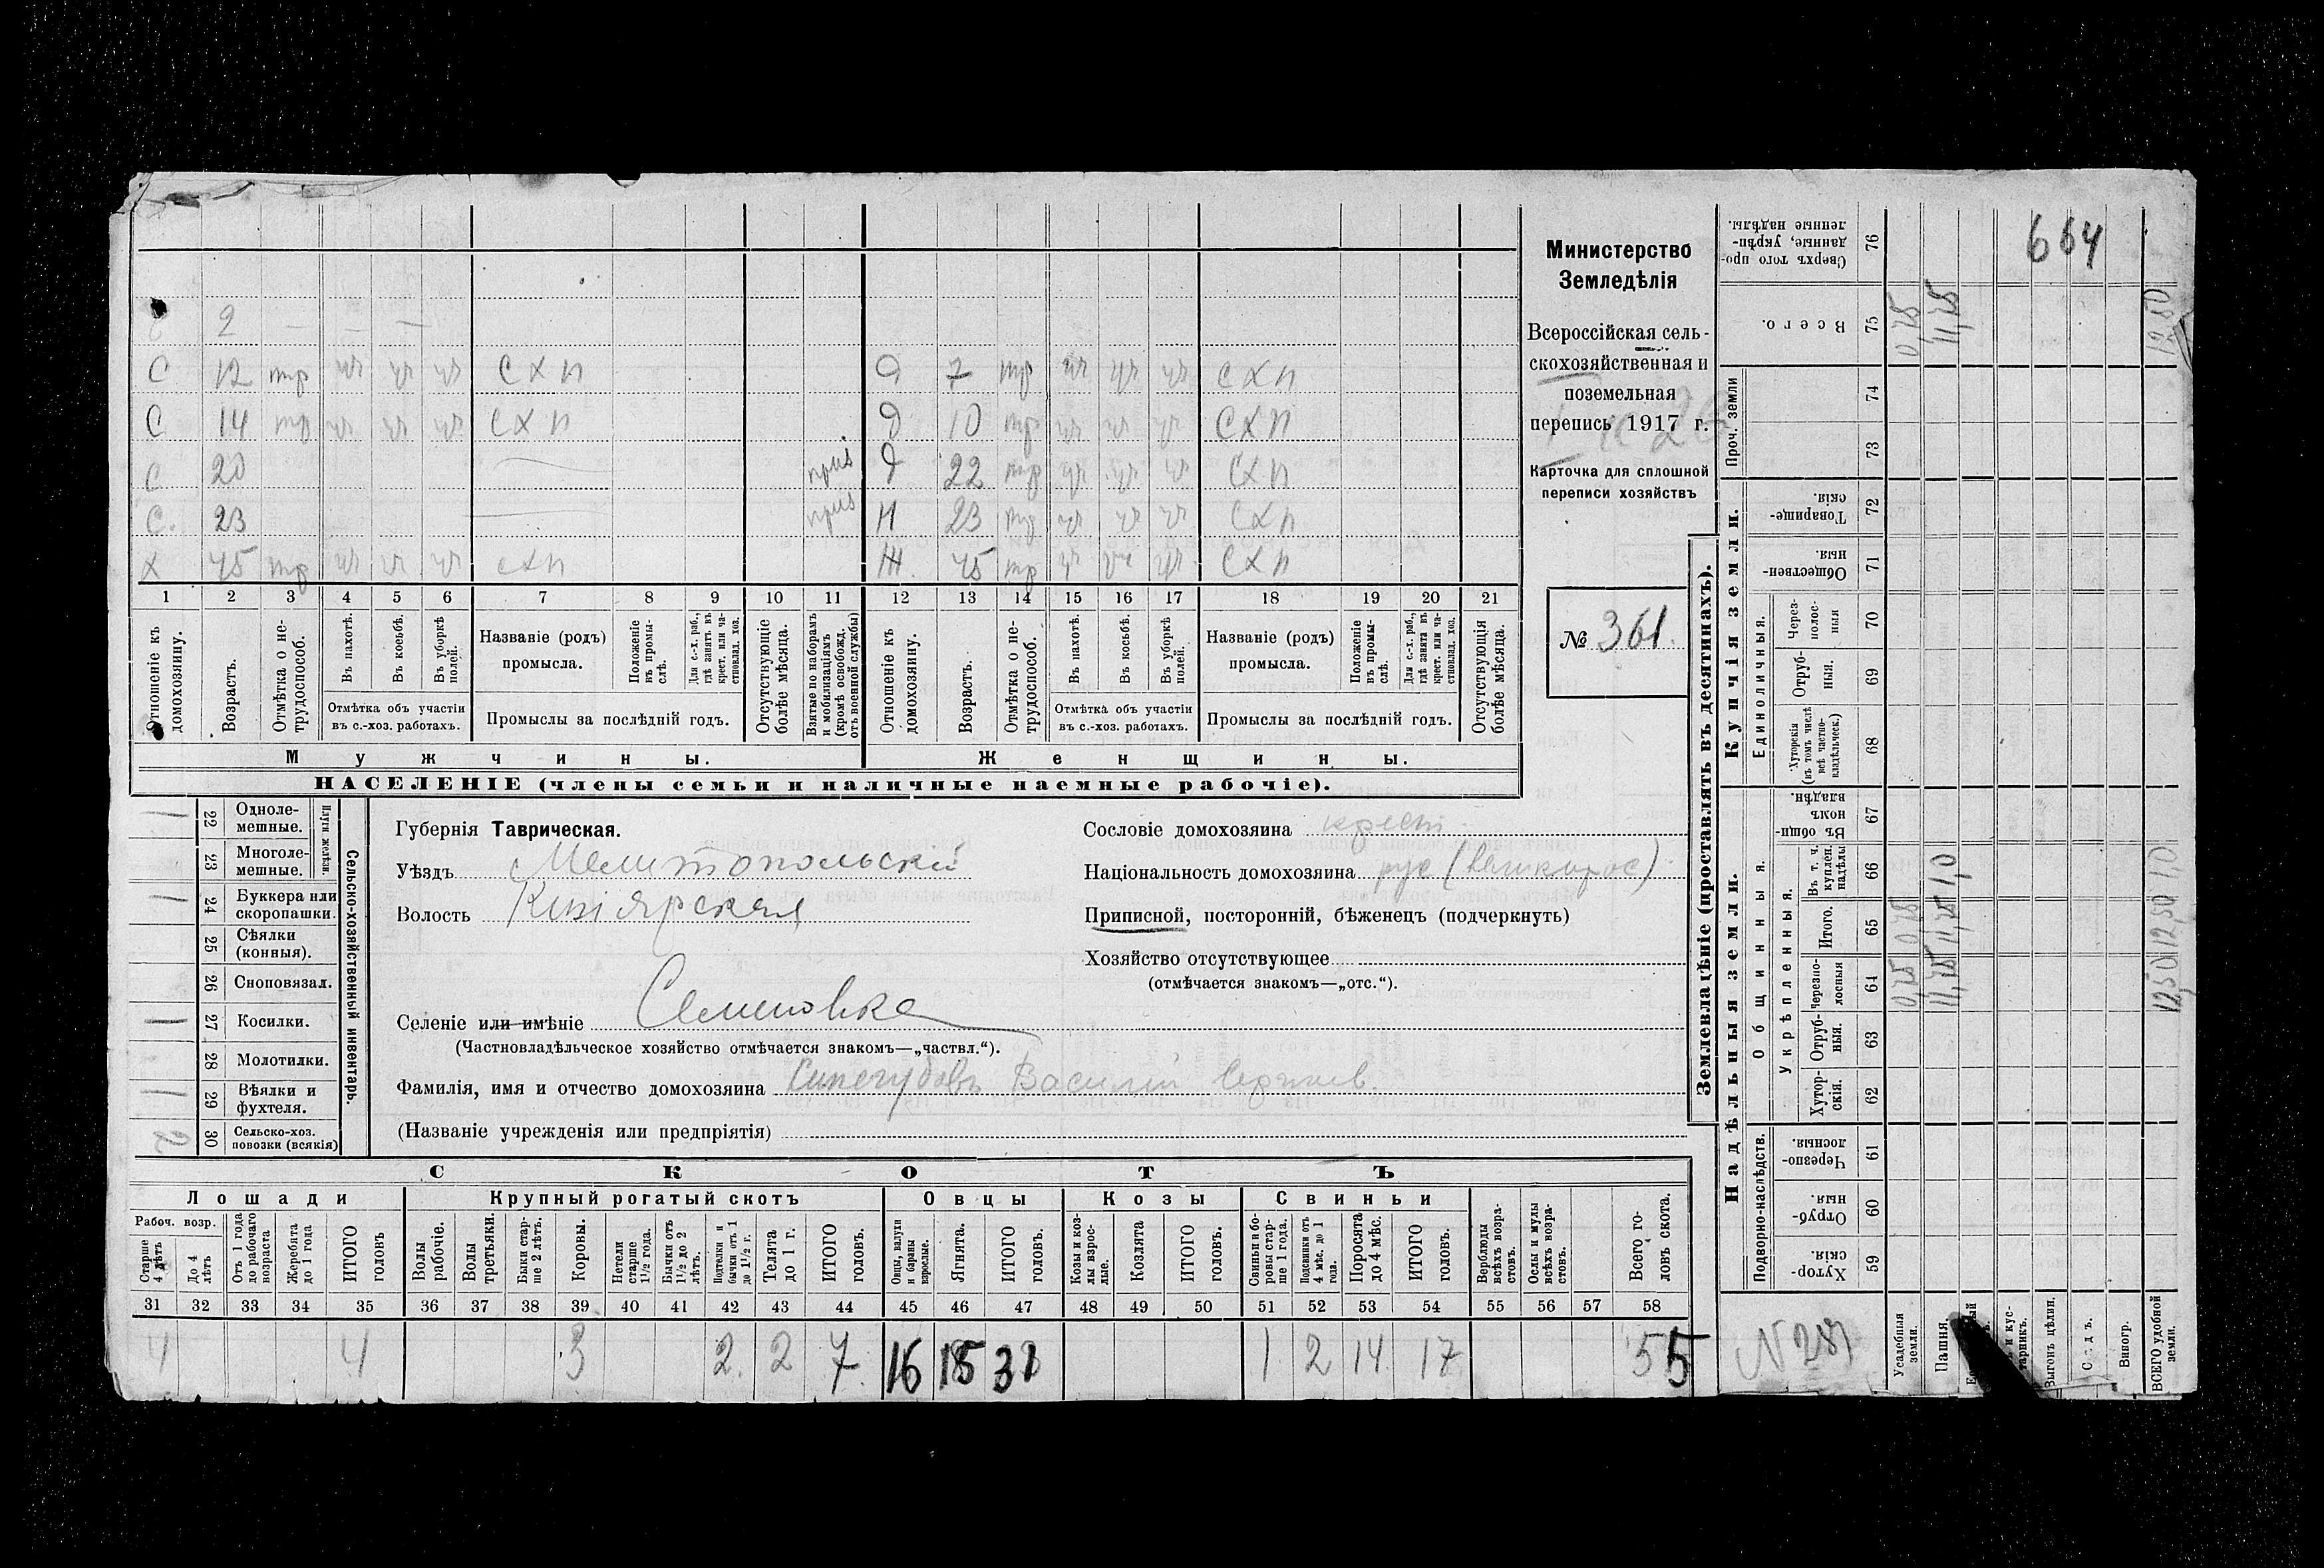 Министерство
Земледѣлія
Всероссійская сель-
скохозяйственная и
поземельная
перепись 1917 г.
Карточка для сплошной
переписи хозяйствъ
№ 361.
2 — — —
С 12 тр уч уч уч СХП Д 7 тр уч уч уч СХП
С 14 тр уч уч уч СХП Д 10 тр уч уч уч СХП
С 20 приз Д 22 тр уч уч уч СХП
С. 23 приз Н 23 тр уч уч уч СХП
Х 45 тр уч уч уч СХП Ж 45 тр уч уч уч СХП
1 2 3 4 5 6 7 8 9 10 11 12 13 14 15 16 17 18 19 20 21
Отношеніе къ домохозяину.
Возрастъ.
Отмѣтка о не-трудоспособ.
Въ пахотѣ.
Въ косьбѣ.
Въ уборкѣ полей.
Отмѣтка объ участіи въ с.-хоз. работахъ.
Названіе (родъ) промысла.
Положеніе въ промы-слѣ.
Для с.-х. раб., гдѣ занятъ въ крест. или ча-стновлад. хоз.
Промыслы за послѣдній годъ.
Отсутствующіе болѣе мѣсяца.
Взятые по наборамъ и мобилизаціямъ (кромѣ освобожд. отъ военной службы)
Отношеніе къ домохозяину.
Возрастъ.
Отмѣтка о не-трудоспособ.
Въ пахотѣ.
Въ косьбѣ.
Въ уборкѣ полей.
Отмѣтка объ участіи въ с.-хоз. работахъ.
Названіе (родъ) промысла.
Положеніе въ промы-слѣ.
Для с.-х. раб., гдѣ занята въ крест. или ча-стновлад. хоз.
Промыслы за послѣдній годъ.
Отсутствующія болѣе мѣсяца.
Мужчины. Женщины.
НАСЕЛЕНІЕ (члены семьи и наличные наемные рабочіе).
Сельско-хозяйственный инвентарь.
Плуги желѣзн.
1 22 Одноле-мешные.
23 Многоле-мешные.
1 24 Буккера или скоропашки.
25 Сѣялки (конныя).
26 Сноповязал.
1 27 Косилки.
28 Молотилки.
1 29 Вѣялки и фухтеля.
2 30 Сельско-хоз. повозки (всякія)
Губернія Таврическая.
Уѣздъ Мелитопольскій
Волость Кизіярская
Селеніе или имѣніе Семеновка
(Частновладѣльческое хозяйство отмѣчается знакомъ—„частвл.“).
Фамилія, имя и отчество домохозяина Синегубовъ Василій
(Названіе учрежденія или предпріятія)
Сословіе домохозяина крест.
Національность домохозяина рус (великорос)
Приписной, посторонній, бѣженецъ (подчеркнуть)
Хозяйство отсутствующее
(отмѣчается знакомъ—„отс.“).
СКОТЪ
Лошади Крупный рогатый скотъ Овцы Козы Свиньи
Рабоч. возр.
Старше 4 лѣтъ
До 4 лѣтъ
Отъ 1 года до рабочаго возраста
Жеребята до 1 года
ИТОГО головъ
Волы рабочіе.
Волы третьяки.
Быки стар-ше 2 лѣтъ.
Коровы.
Нетели старше 1½ года.
Бычки отъ 1½ до 2 лѣтъ.
Подтелки и бычки отъ 1 до 1½ г.
Телята до 1 г.
ИТОГО головъ.
Овцы, валухи и бараны взрослые.
Ягнята.
ИТОГО головъ.
Козы и коз-лы взрос-лые.
Козлята
ИТОГО головъ.
Свиньи и бо-ровы стар-ше 1 года.
Подсвинки отъ 4 мѣс. до 1 года.
Поросята до 4 мѣс.
ИТОГО головъ.
Верблюды всѣхъ возра-стовъ.
Ослы и мулы всѣхъ возра-стовъ.
Всего го-ловъ скота.
31 32 33 34 35 36 37 38 39 40 41 42 43 44 45 46 47 48 49 50 51 52 53 54 55 56 57 58
4 4 3 2 2 7 16 15 31 1 2 14 17 55
Землевладѣніе (проставлять въ десятинахъ).
Надѣльныя земли. Купчія земли.
Подворно-наслѣдств.
Общинныя
Укрѣпленныя.
Единоличныя.
Проч. земли
Хутор-скія. 59
Отруб-ныя. 60
Черезпо-лосныя. 61
Хутор-скія. 62
Отруб-ныя. 63
Черезпо-лосныя 64
Итого. 65
Въ т. ч. куплен. надѣлы 66
Въ общи-номъ владѣн. 67
Хуторскія (въ томъ числѣ всѣ частно-владѣльческ.) 68
Отруб-ныя. 69
Через-полос-ныя 70
Обществен-ныя. 71
Товарище-скія. 72
73
74
Всего. 75
Сверхъ того про-данные, укрѣп-ленные надѣлы. 76
Усадебныя земли. 0,75 0,75 0,75
Пашня. 11,75 11,75 1,0 11,75
Выгонъ цѣлин.
Садъ.
Виногр.
ВСЕГО удобной земли. 12,50 12,50 1,0 12,50
664